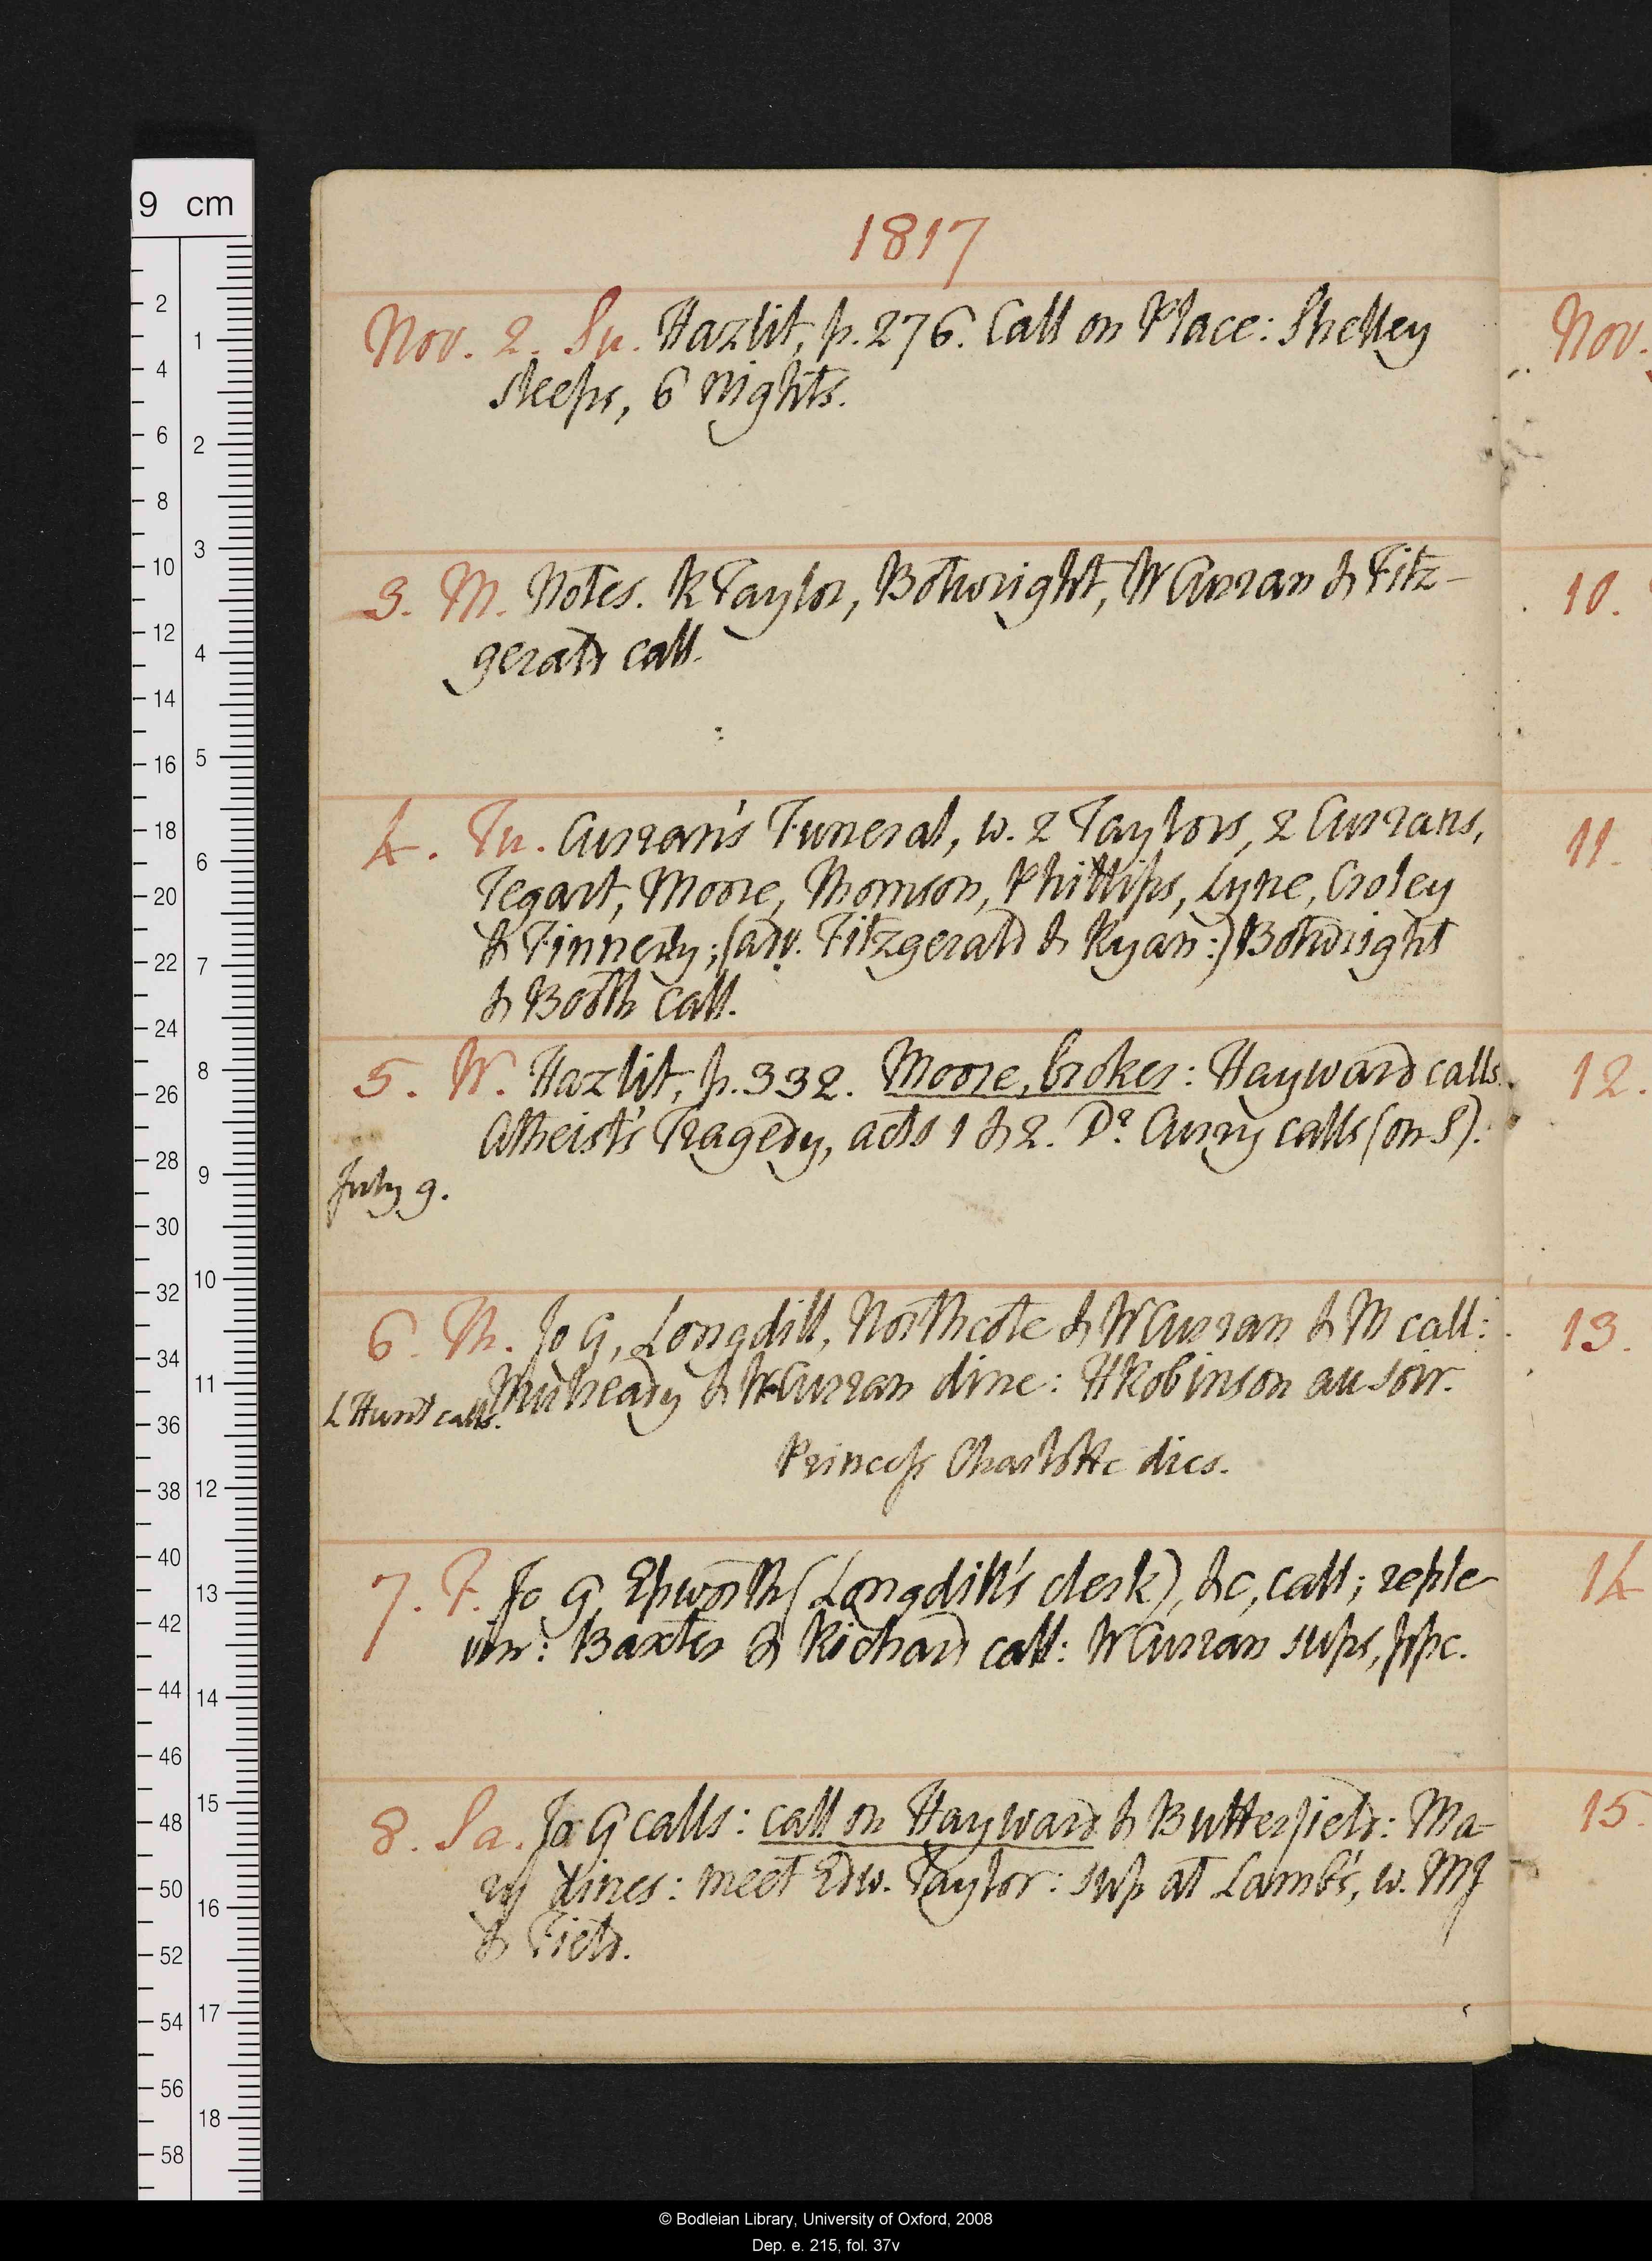 9 cm
1817
Nov. 2. Su. Hazlit, p. 276. Call on Place: Shelley
sleeps, 6 nights.
3. M. Notes. R Taylor, Botwright, W Curran & Fitz-
gerald call.
4. Tu. Curran's Funeral, w. 2 Taylors, 2 Currans,
Tegart, Moore, Thomson, Phillips, Lyne, Croley
& Finnerty; (adv. Fitzgerald & Ryan:) Botwright
& Booth call.
5. W. Hazlit, p. 332. Moore, broker: Hayward calls.
Atheist's Tragedy, acts 1 & 2. Dr Curry calls (on S).
July 9.
6. Th. Jo G, Longdill, Northcote & W Curran & M call:
Mulready & W Curran dine: H Robinson au soir.
L Hunt calls.
Princess Charlotte dies.
7. F. Jo G, Epworth (Longdill's clerk), &c, call; reple-
vin: Baxter & Richard call: W Curran sups, ppc.
8. Sa. Jo G calls: call on Hayward & Butterfield: Ma-
ry dines: meet Edw. Taylor: sup at Lamb's, w. MJ
& Field.
Nov.
10.
11.
12.
13.
14
15.
2
4
6
8
10
12
14
16
18
20
22
24
26
28
30
32
34
36
38
40
42
44
46
48
50
52
54
56
58
1
2
3
4
5
6
7
8
9
10
11
12
13
14
15
16
17
18
© Bodleian Library, University of Oxford, 2008
Dep. e. 215, fol. 37v